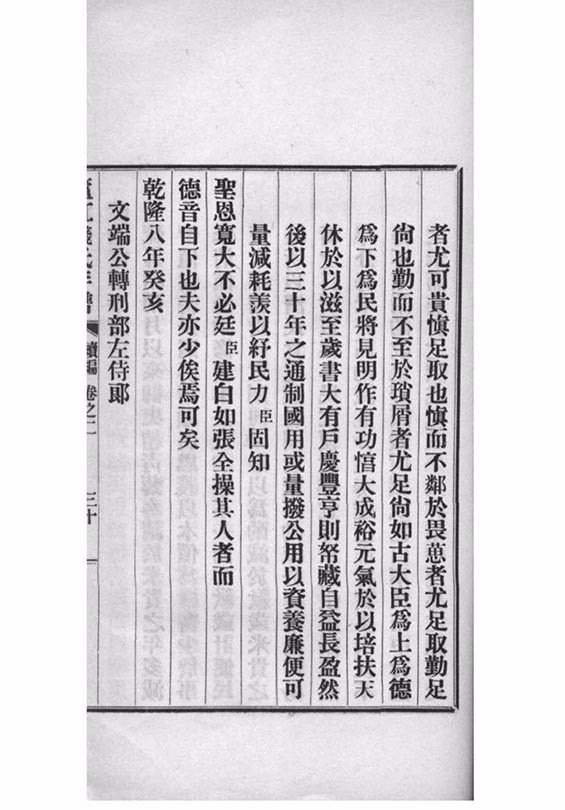 者尤可貴慎足取也慎而不鄰於畏葸者尤足取勤足
尙也勤而不至於瑣屑者尤足尙如古大臣爲上爲德
爲下爲民將見明作有功惇大成裕元氣於以培扶天
休於以滋至歲書大有戶慶豐亨則帑藏自益長盈然
後以三十年之通制國用或量撥公用以資養廉便可
量減耗羨以紓民力臣固知
聖恩寬大不必廷臣建白如張全操其人者而
德音自下也夫亦少俟焉可矣
乾隆八年癸亥
文端公轉刑部左侍郎
廬江錢氏年譜 續編 卷之二 三十